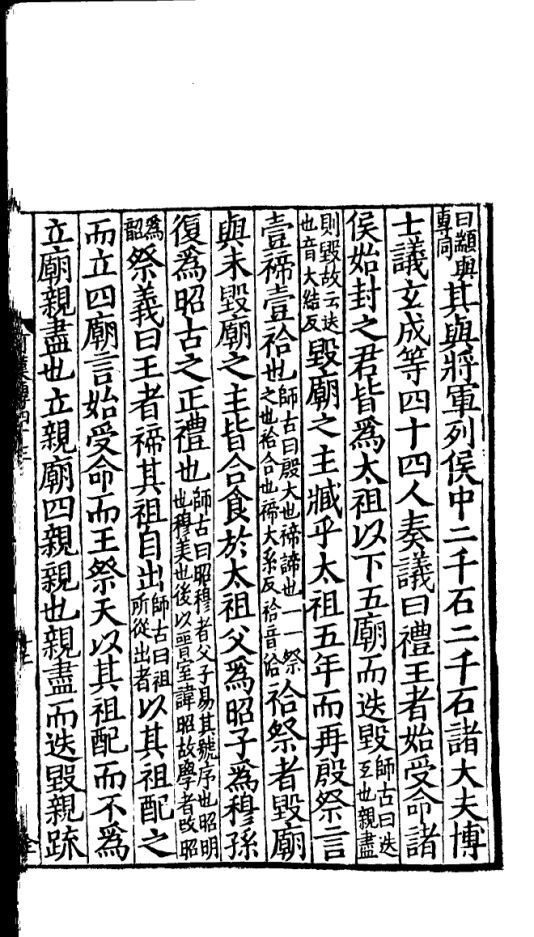 曰顓與專同其與將軍列侯中二千石二千石諸大夫博
士議玄成等四十四人奏議曰禮王者始受命諸
侯始封之君皆爲太祖以下五廟而迭毀師古曰迭互也親盡
則毀故云迭也音大結反毀廟之主臧乎太祖五年而再殷祭言
壹禘壹祫也師古曰殷大也禘諦也一一祭之也祫合也禘大系反祫音洽祫祭者毀廟
與未毀廟之主皆合食於太祖父爲昭子爲穆孫
復爲昭古之正禮也師古曰昭穆者父子易其號序也昭明也穆美也後以晉室諱昭故學者改昭
爲韶祭義曰王者禘其祖自出師古曰祖所從出者以其祖配之
而立四廟言始受命而王祭天以其祖配而不爲
立廟親盡也立親廟四親親也親盡而迭毀親疏